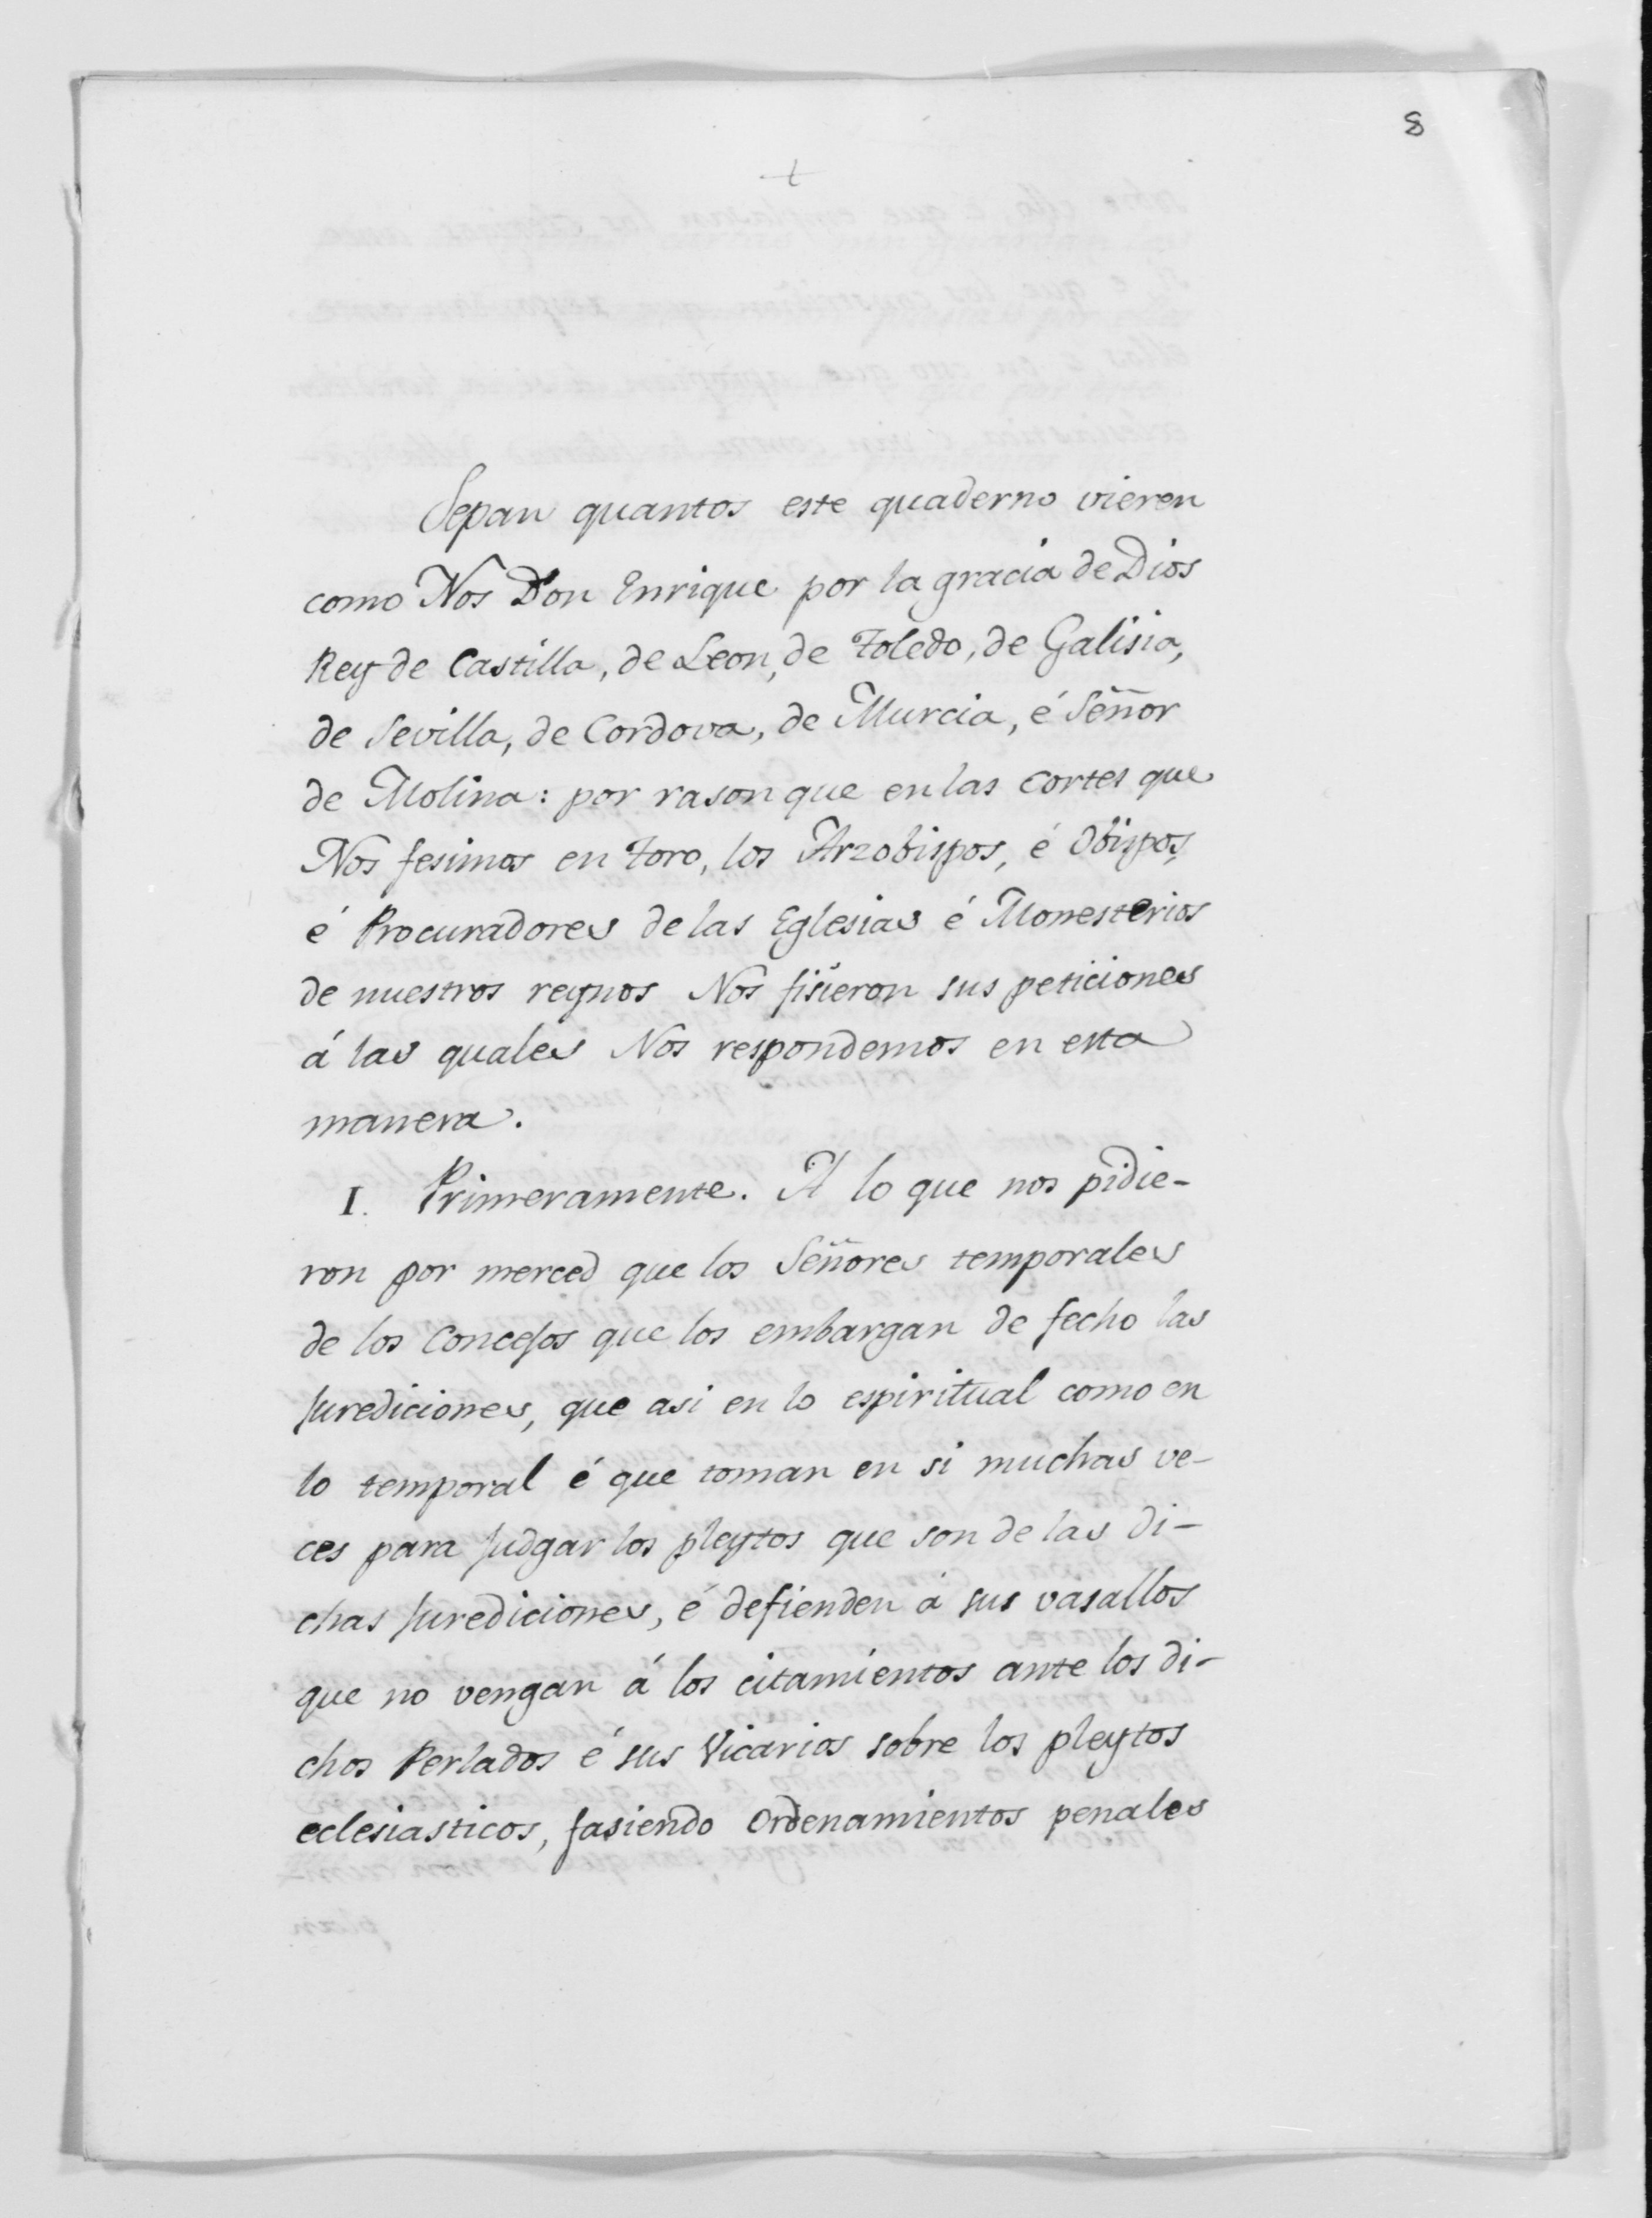 8
+
Sepan quantos este quaderno vieren
como Nos Don Enrique por la gracia de Dios
Rey de Castilla, de Leon, de Toledo, de Galisia,
de Sevilla, de Cordova, de Murcia, é Señor
de Molina: por rason que en las Cortes que
Nos fesimos en Toro, los Arzobispos, é Obispos,
é Procuradores de las Eglesias é Monesterios
de nuestros reynos Nos fisieron sus peticiones
á las quales Nos respondemos en esta
manera.
I. Primeramente. A lo que nos pidie-
ron por merced que los Señores temporales
de los Concejos que los embargan de fecho las
Jurediciones, que asi en lo espiritual como en
lo temporal é que toman en si muchas ve-
ces para Judgar los pleytos que son de las di-
chas Jurediciones, é defienden á sus vasallos
que no vengan á los citamientos ante los di-
chos Perlados é sus Vicarios sobre los pleytos
eclesiasticos, fasiendo Ordenamientos penales